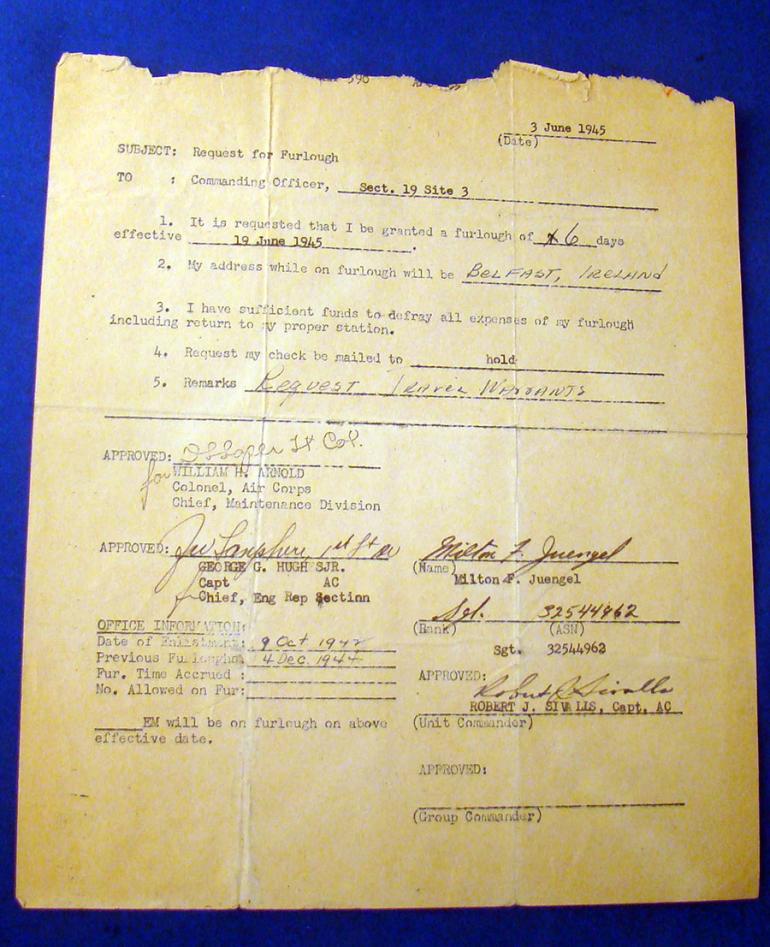 3 June 1945
(Date)
SUBJECT: Request for Furlough
TO : Commanding Officer, Sect. 19 Site 3
1. It is requested that I be granted a furlough of 6 days
effective 19 June 1945.
2. My address while on furlough will be BELFAST, IRELAND
3. I have sufficient funds to defray all expenses of my furlough
including return to my proper station.
4. Request my check be mailed to hold
5. Remarks REQUEST TRAVEL WARRANTS
APPROVED: Lt Col.
for WILLIAM H. ARNOLD
Colonel, Air Corps
Chief, Maintenance Division
APPROVED: 1st Lt
GEORGE G. HUGHSJR.
Capt AC
Chief, Eng Rep Section
Milton F. Juengel
(Name)
Milton F. Juengel
Sgt. 32544962
(Rank) (ASN)
Sgt. 32544962
OFFICE INFORMATION:
Date of Enlistment: 9 Oct 1942
Previous Furloughs: 4 Dec. 1944
Fur. Time Accrued :
No. Allowed on Fur:
EM will be on furlough on above
effective date.
APPROVED:
Robert J Sivalls
ROBERT J. SIVALLS, Capt, AC
(Unit Commander)
APPROVED:
(Group Commander)